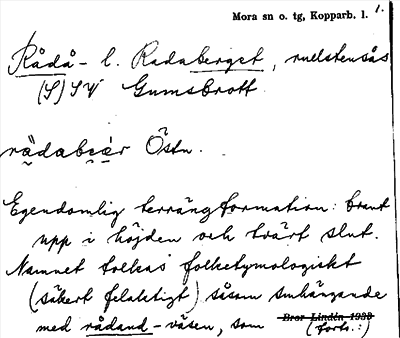 Mora sn o. tg, Kopparb. l. 1.
Rådå- l. Radaberget, rullstensås
(S) SV Gumsbrott
rädabær Östn.
Egendomlig terrängformation: brant
upp i höjden och tvärt slut.
Namnet tolkas folketymologiskt
(säkert felaktigt) såsom samhängande
med rådand-väsen, som Bror Lindén 1939
(forts.:)